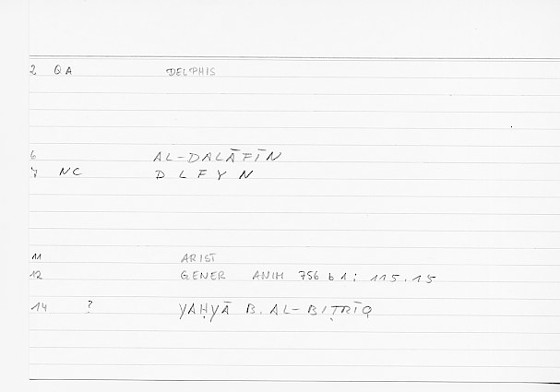 2 QA DELPHIS
6 AL-DALĀFĪN
7 NC D L F Y N
11 ARIST
12 GENER ANIM 756 b 1; 115.15
14 ? YAḤYĀ B. AL-BIṬRĪQ